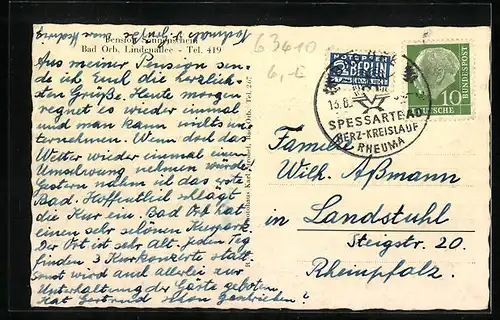 Pension Sonnenschein
Bad Orb, Lindenallee - Tel. 419
Aus meiner Pension sen-
de ich Euch die herzlich-
sten Grüße. Heute morgen
regnet es wieder einmal
und man kann nichts un-
ternehmen. Wenn doch das
Wetter wieder einmal einen
Umschwung nehmen würde.
Gestern nahm ich das erste
Bad. Hoffentlich schlägt
die Kur ein. Bad Orb hat
einen sehr schönen Kurpark.
Der Ort ist sehr alt. Jeden Tag
finden 3 Kurkonzerte statt.
Sonst wird auch allerlei zur
Unterhaltung der Gäste geboten.
Hat Gertrud schon geschrieben?
63410
NOTOPFER
2 BERLIN
STEUERMARKE
DEUTSCHE
BUNDESPOST
10
SPESSARTBAD
HERZ-KREISLAUF
RHEUMA
Familie
Wilh. Aßmann
in Landstuhl
Steigstr. 20
Rheinpfalz.